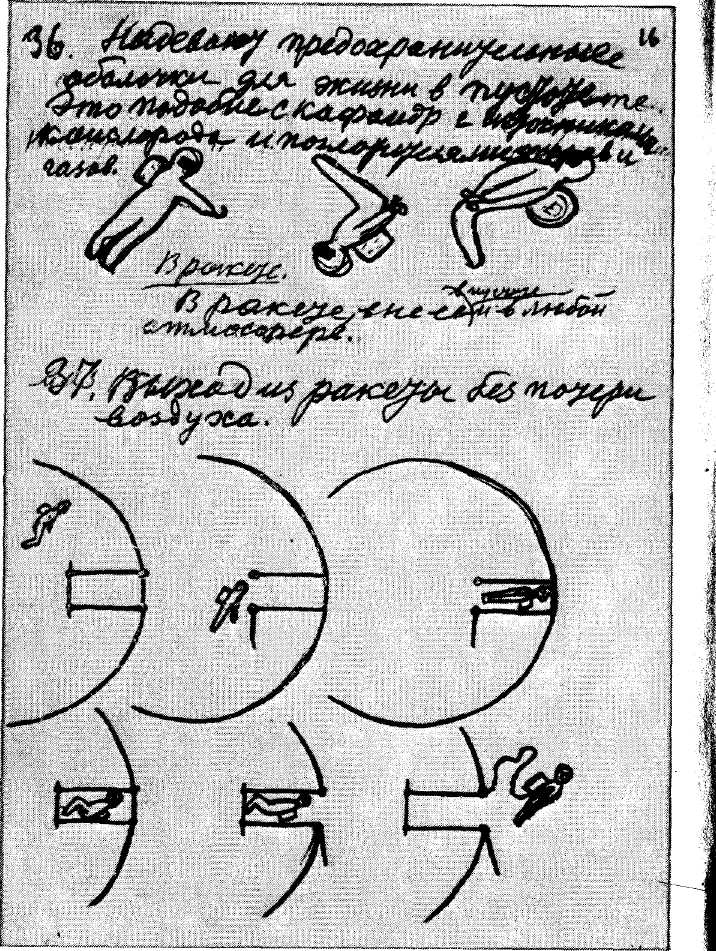 16
36. Надевают предохранительные
оболочки для жизни в пустоте.
Это подобие скафандр с источниками
кислорода и поглотителями паров и
газов.
В ракете.
в пустоте
В ракете, вне ея и в любой
атмосфере.
37. Выход из ракеты без потери
воздуха.